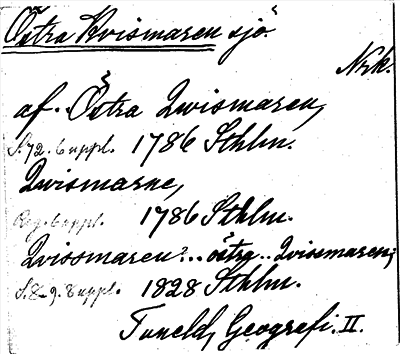 Östra Kvismaren sjö.
Nrk.
af. Östra Qvismaren,
S. 72. 6 uppl. 1786 Sthlm.
Qvismarne,
Reg. 6 uppl. 1786 Sthlm.
Qvissmaren?.. östra.. Qvismaren;
S. 8-9. 8 uppl. 1828 Sthlm.
Tuneld, Geografi. II.